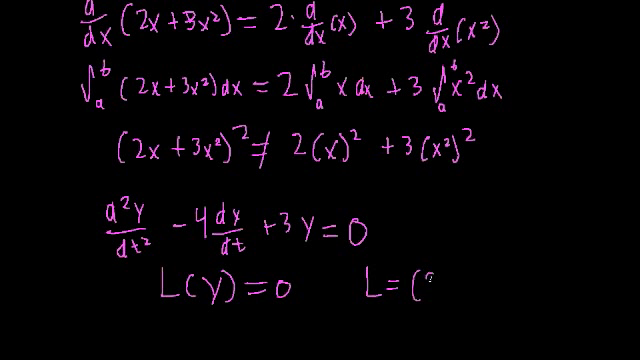 d/dx (2x+3x²) = 2·d/dx(x) + 3 d/dx(x²)
∫ₐᵇ (2x+3x²)dx = 2∫ₐᵇ x dx + 3∫ₐᵇ x² dx
(2x+3x²)² ≠ 2(x)² + 3(x²)²
d²y/dt² - 4 dy/dt + 3y = 0
L(y) = 0 L = (